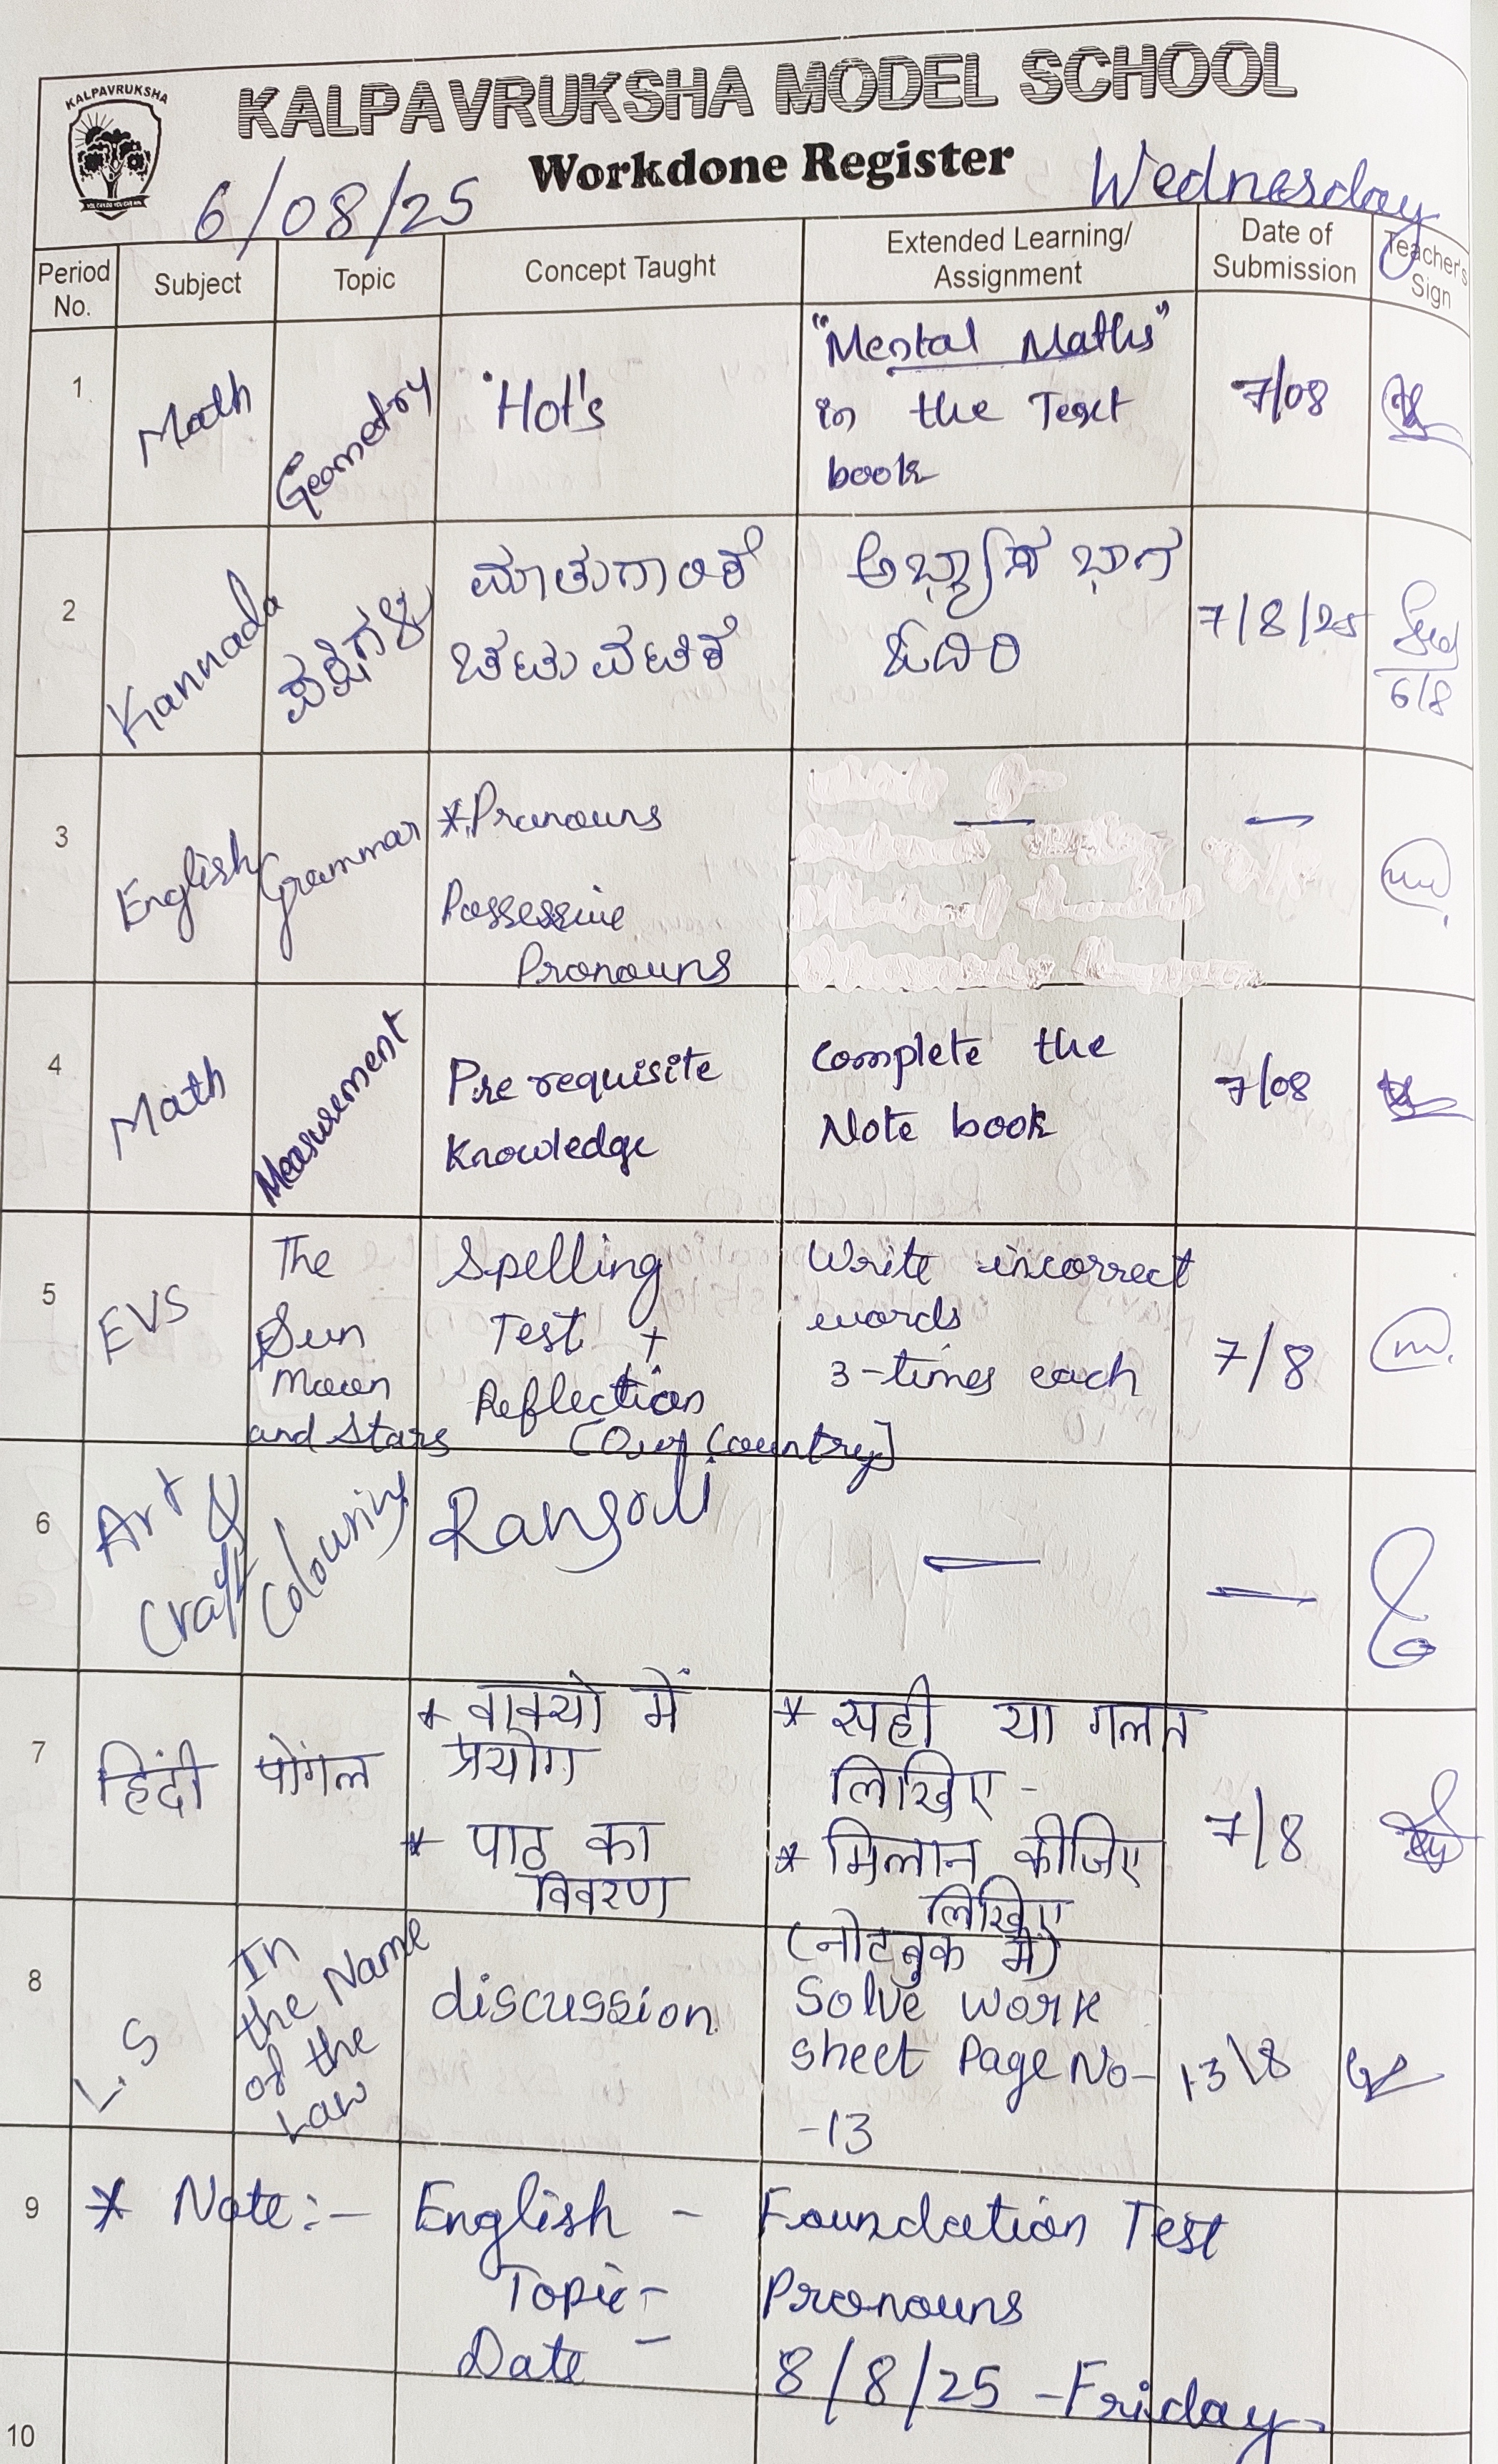 KALPAVRUKSHA
KALPAVRUKSHA MODEL SCHOOL
Workdone Register
6/08/25
Wednesday
Period No.
Subject
Topic
Concept Taught
Extended Learning/ Assignment
Date of Submission
Teacher's Sign
1
Math
Geometry
Hot's
"Mental Maths"
in the Text
book
7/08
2
Kannada
ಪಕ್ಷಿಗಳು
ಮಾತುಗಾರಿಕೆ
ಚಟುವಟಿಕೆ
ಅಭ್ಯಾಸ ಭಾಗ
ಓದಿರಿ
7/8/25
6/8
3
English
Grammar
*Pronouns
Possessive
Pronouns
—
—
4
Math
Measurement
Pre requisite
Knowledge
Complete the
Note book
7/08
5
EVS
The
Sun
Moon
and Stars
Spelling
Test +
Reflection
[Our Country]
Write incorrect
words
3-times each
7/8
6
Art &
Craft
Colouring
Rangoli
—
—
7
हिंदी
पोंगल
* वाक्यो में
प्रयोग
* पाठ का
विवरण
* सही या गलत
लिखिए -
* मिलान कीजिए
लिखिए
(नोटबुक में)
7/8
8
L.S
In
the Name
of the
Law
discussion
Solve work
sheet Page No-
-13
13\8
9
* Note:- English - Foundation Test
Topic- Pronouns
Date - 8/8/25 - Friday.
10